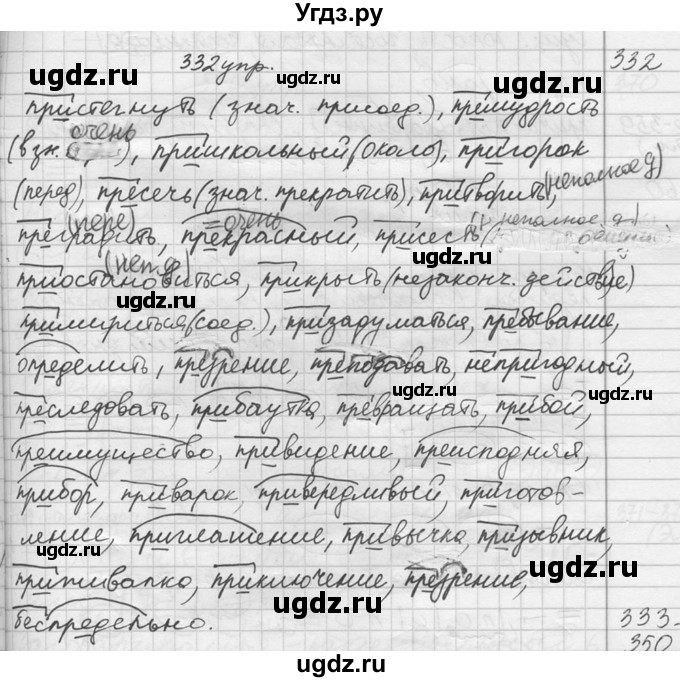 Угдз.ру
332 упр. 332
пристегнуть (знач. присоед.), премудрость
(взн. очень), пришкольный (около), пригорок
(перед), пресечь (знач. прекратить), притворить, (неполное д)
преградить (пере), прекрасный = очень, присесть (неполное д.)
приостановиться (неп.д), прикрыть (незаконч. действие)
примириться (соед.), призадуматься, пребывание,
определить, презрение, преподавать, непригодный,
преследовать, прибаутка, превращать, прибой,
преимущество, привидение, преисподняя,
прибор, приварок, привередливый, приготов-
ление, приглашение, привычка, призывник,
приживалка, приключение, презрение,
беспредельно. 333-
350
ugdz.ru
ugdz.ru
ugdz.ru
ugdz.ru
ugdz.ru
ugdz.ru
ugdz.ru
ugdz.ru
ugdz.ru
ugdz.ru
ugdz.ru
ugdz.ru
ugdz.ru
ugdz.ru